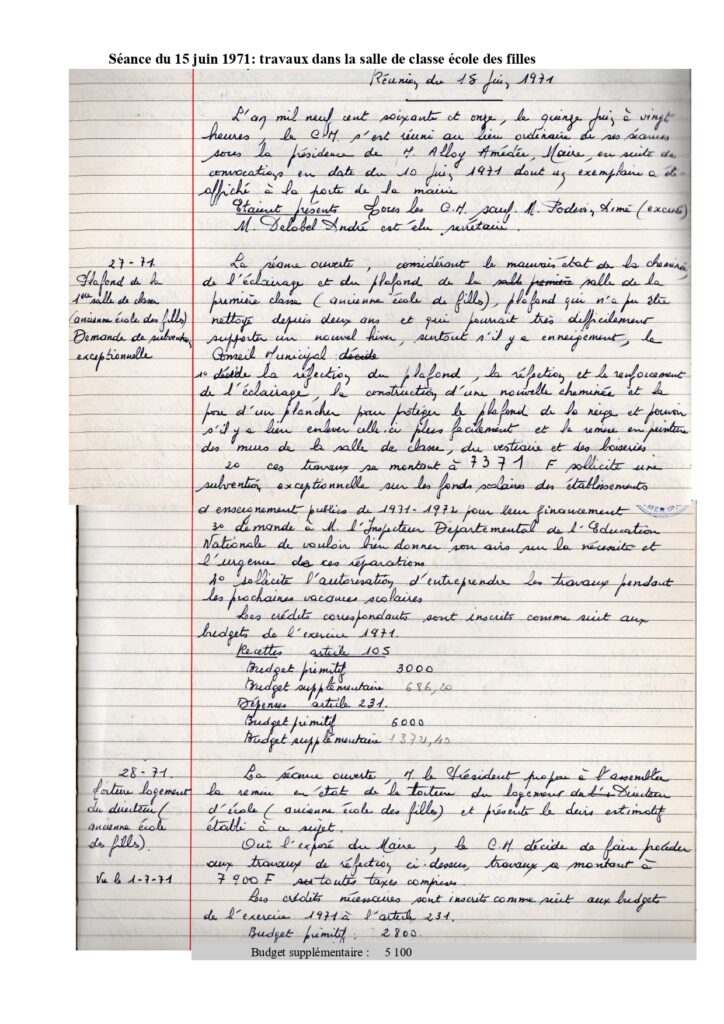 Séance du 15 juin 1971: travaux dans la salle de classe école des filles
Réunion du 15 Juin 1971
L'an mil neuf cent soixante et onze, le quinze juin à vingt
heures, le C.M. s'est réuni au lieu ordinaire de ses séances
sous la présidence de M. Alloy Amédée, Maire, en suite de
convocations en date du 10 juin 1971 dont un exemplaire a été
affiché à la porte de la mairie
Etaient présents Tous les C.M. sauf M. Podevin Aimé (excusé)
M. Delobel André est élu secrétaire.
27-71
Plafond de la
1ère salle de classe
(ancienne école des filles)
Demande de subvention
exceptionnelle
La séance ouverte, considérant le mauvais état de la cheminée,
de l'éclairage et du plafond de la salle première salle de la
première classe (ancienne école de filles), plafond qui n'a pu être
nettoyé depuis deux ans et qui pourrait très difficilement
supporter un nouvel hiver, surtout s'il y a enneigement, le
Conseil Municipal décide
1° décide la réfection du plafond, la réfection et le renforcement
de l'éclairage, la construction d'une nouvelle cheminée et la
pose d'un plancher pour protéger le plafond de la neige et pouvoir
s'il y a lieu enlever celle-ci plus facilement et la remise en peinture
des murs de la salle de classe, du vestiaire et des boiseries
2° ces travaux se montant à 7371 F sollicite une
subvention exceptionnelle sur les fonds scolaires des établissements
d'enseignement publics de 1971-1972 pour leur financement
3° demande à M. l'Inspecteur Départemental de l'Education
Nationale de vouloir bien donner son avis sur la nécessité et
l'urgence de ces réparations
4° sollicite l'autorisation d'entreprendre les travaux pendant
les prochaines vacances scolaires
Les crédits correspondants sont inscrits comme suit aux
budgets de l'exercice 1971.
Recettes article 105
Budget primitif 3000
Budget supplémentaire 686,20
Dépenses article 231.
Budget primitif 6000
Budget supplémentaire 1372,40
28-71.
Toiture logement
du directeur (
ancienne école
des filles).
Vu le 1-7-71
La séance ouverte, M le Président propose à l'assemblée
la remise en état de la toiture du logement de l' Directeur
d'école (ancienne école des filles) et présente le devis estimatif
établi à ce sujet.
Ouï l'exposé du Maire, le C.M. décide de faire procéder
aux travaux de réfection ci-dessus, travaux se montant à
7900 F toutes taxes comprises.
Les crédits nécessaires sont inscrits comme suit aux budgets
de l'exercice 1971 à l'article 231.
Budget primitif: 2800.
Budget supplémentaire : 5 100